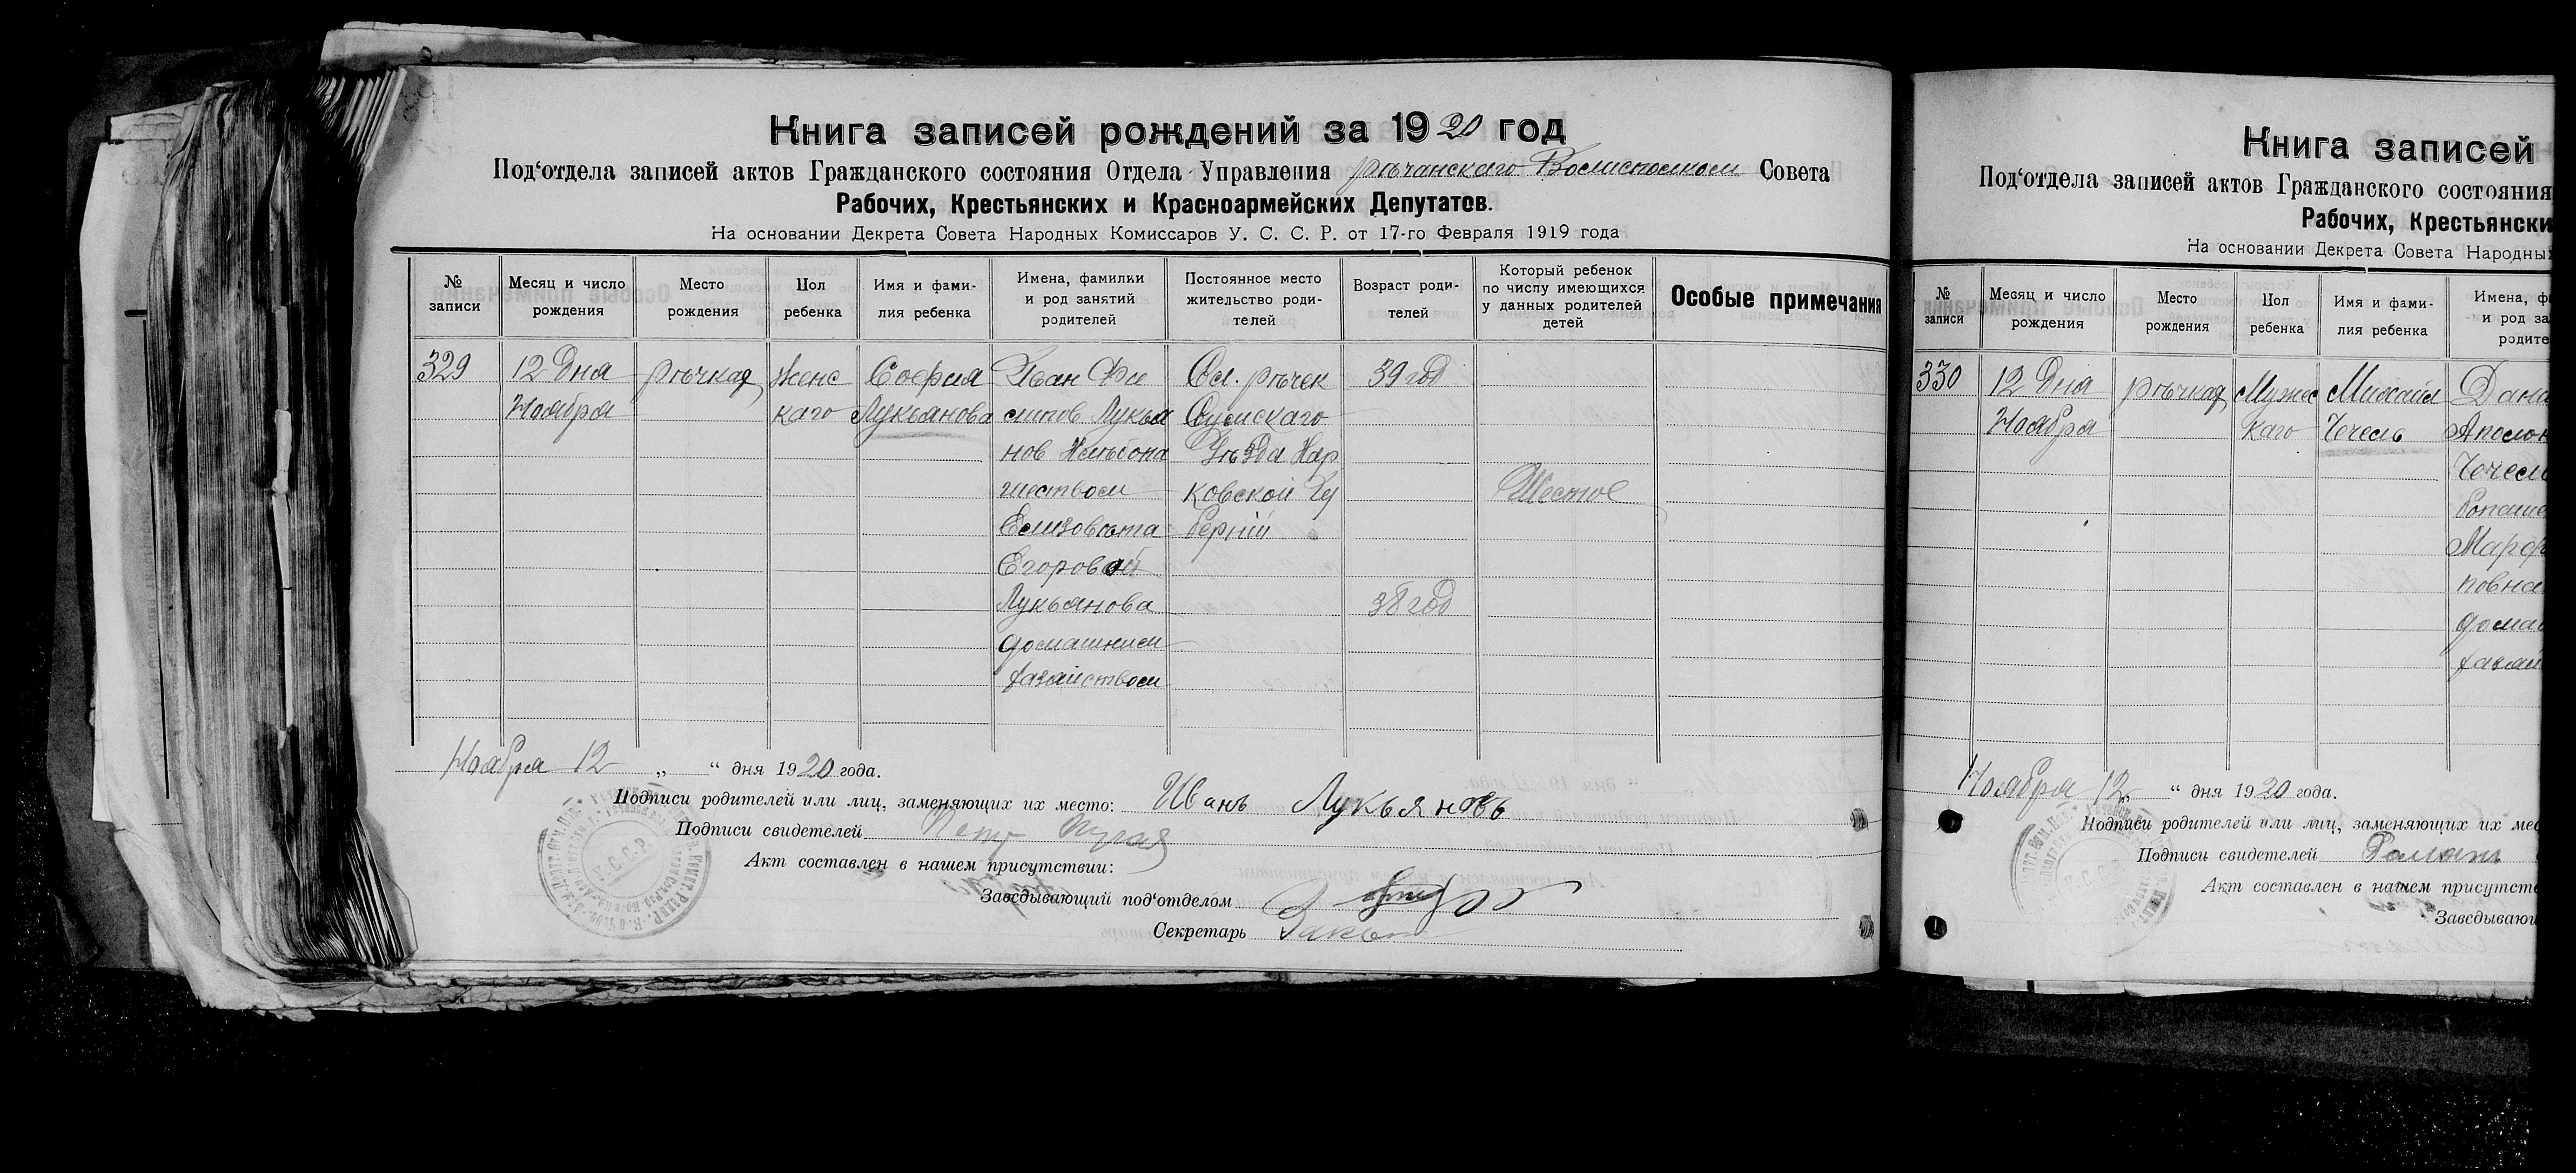 Книга записей рождений за 1920 год
Под‘отдела записей актов Гражданского состояния Отдела Управления рѣчанскаго Совета
Рабочих, Крестьянских и Красноармейских Депутатов.
На основании Декрета Совета Народных Комиссаров У. С. С. Р. от 17-го Февраля 1919 года
№ записи
Месяц и число рождения
Место рождения
Пол ребенка
Имя и фами-лия ребенка
Имена, фамилии и род занятий родителей
Постоянное место жительство роди-телей
Возраст роди-телей
Который ребенок по числу имеющихся у данных родителей детей
Особые примечания
329
12 Дня
Ноября
рѣчках
Женс
каго
София
Лукьянова
Иван Фи
липов Лукья
нов
шеством
Елизовѣта
Егоровой
Лукьянова
домашним
хазяйством
Сл. рѣчек
Сумскаго
Уѣзда Хар
ковской Гу
берніи
39 год
38 год
Шестое
Ноября 12 „ “ дня 1920 года.
Подписи родителей или лиц, заменяющих их место: Иванъ Лукьяновъ
Подписи свидетелей
Акт составлен в нашем присутствии:
Заведывающий под‘отделом
Секретарь
У.С.С.Р.
Книга записей
Под‘отдела записей актов Гражданского состояния
Рабочих, Крестьянски
На основании Декрета Совета Народны
№ записи
Месяц и число рождения
Место рождения
Пол ребенка
Имя и фами-лия ребенка
Имена, ф
и род за
родите
330
12 Дня
Ноября
рѣчках
Мужс
каго
Михаил
Чечель
Дана
Аполон
Чечель
Марф
повна
домаш
хазяй
Ноября 12 „ “ дня 1920 года.
Подписи родителей или лиц, заменяющих их мес
Подписи свидетелей Романъ
Акт составлен в нашем присутств
Заведывающ